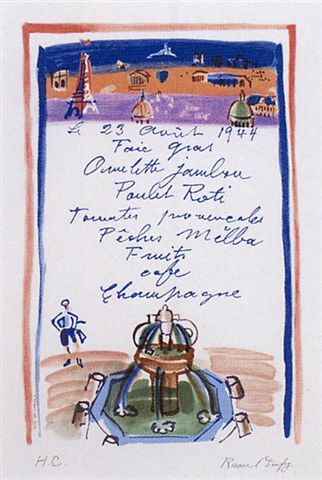 Le 23 août 1944
Foie gras
Omelette jambon
Poulet Roti
Tomates provencales
Pêches Melba
Fruits
cafe
Champagne
H.C.
Raoul Dufy